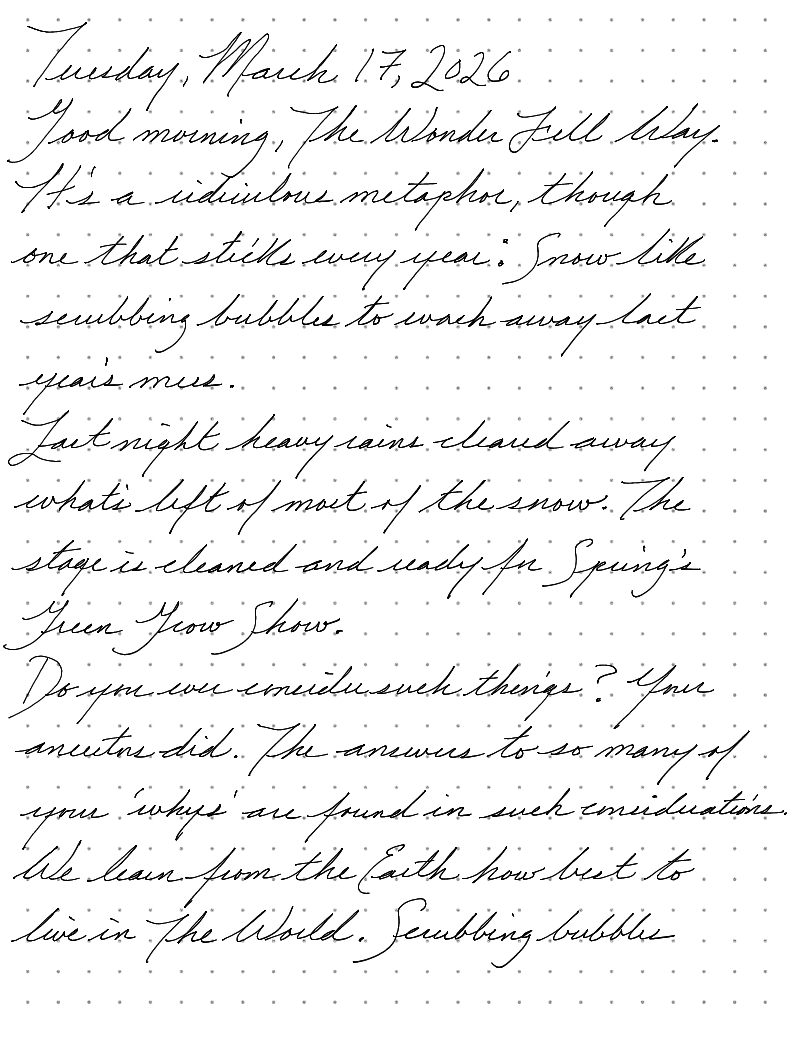 Tuesday, March 17, 2026
Good morning, The Wonder Fell Way.
It's a ridiculous metaphor, though
one that sticks every year: Snow like
scrubbing bubbles to wash away last
year's mess.
Last night heavy rains cleared away
what's left of most of the snow. The
stage is cleaned and ready for Spring's
Green Grow Show.
Do you ever consider such things? Your
ancestors did. The answers to so many of
your 'whys' are found in such considerations.
We learn from the Earth how best to
live in The World. Scrubbing bubbles